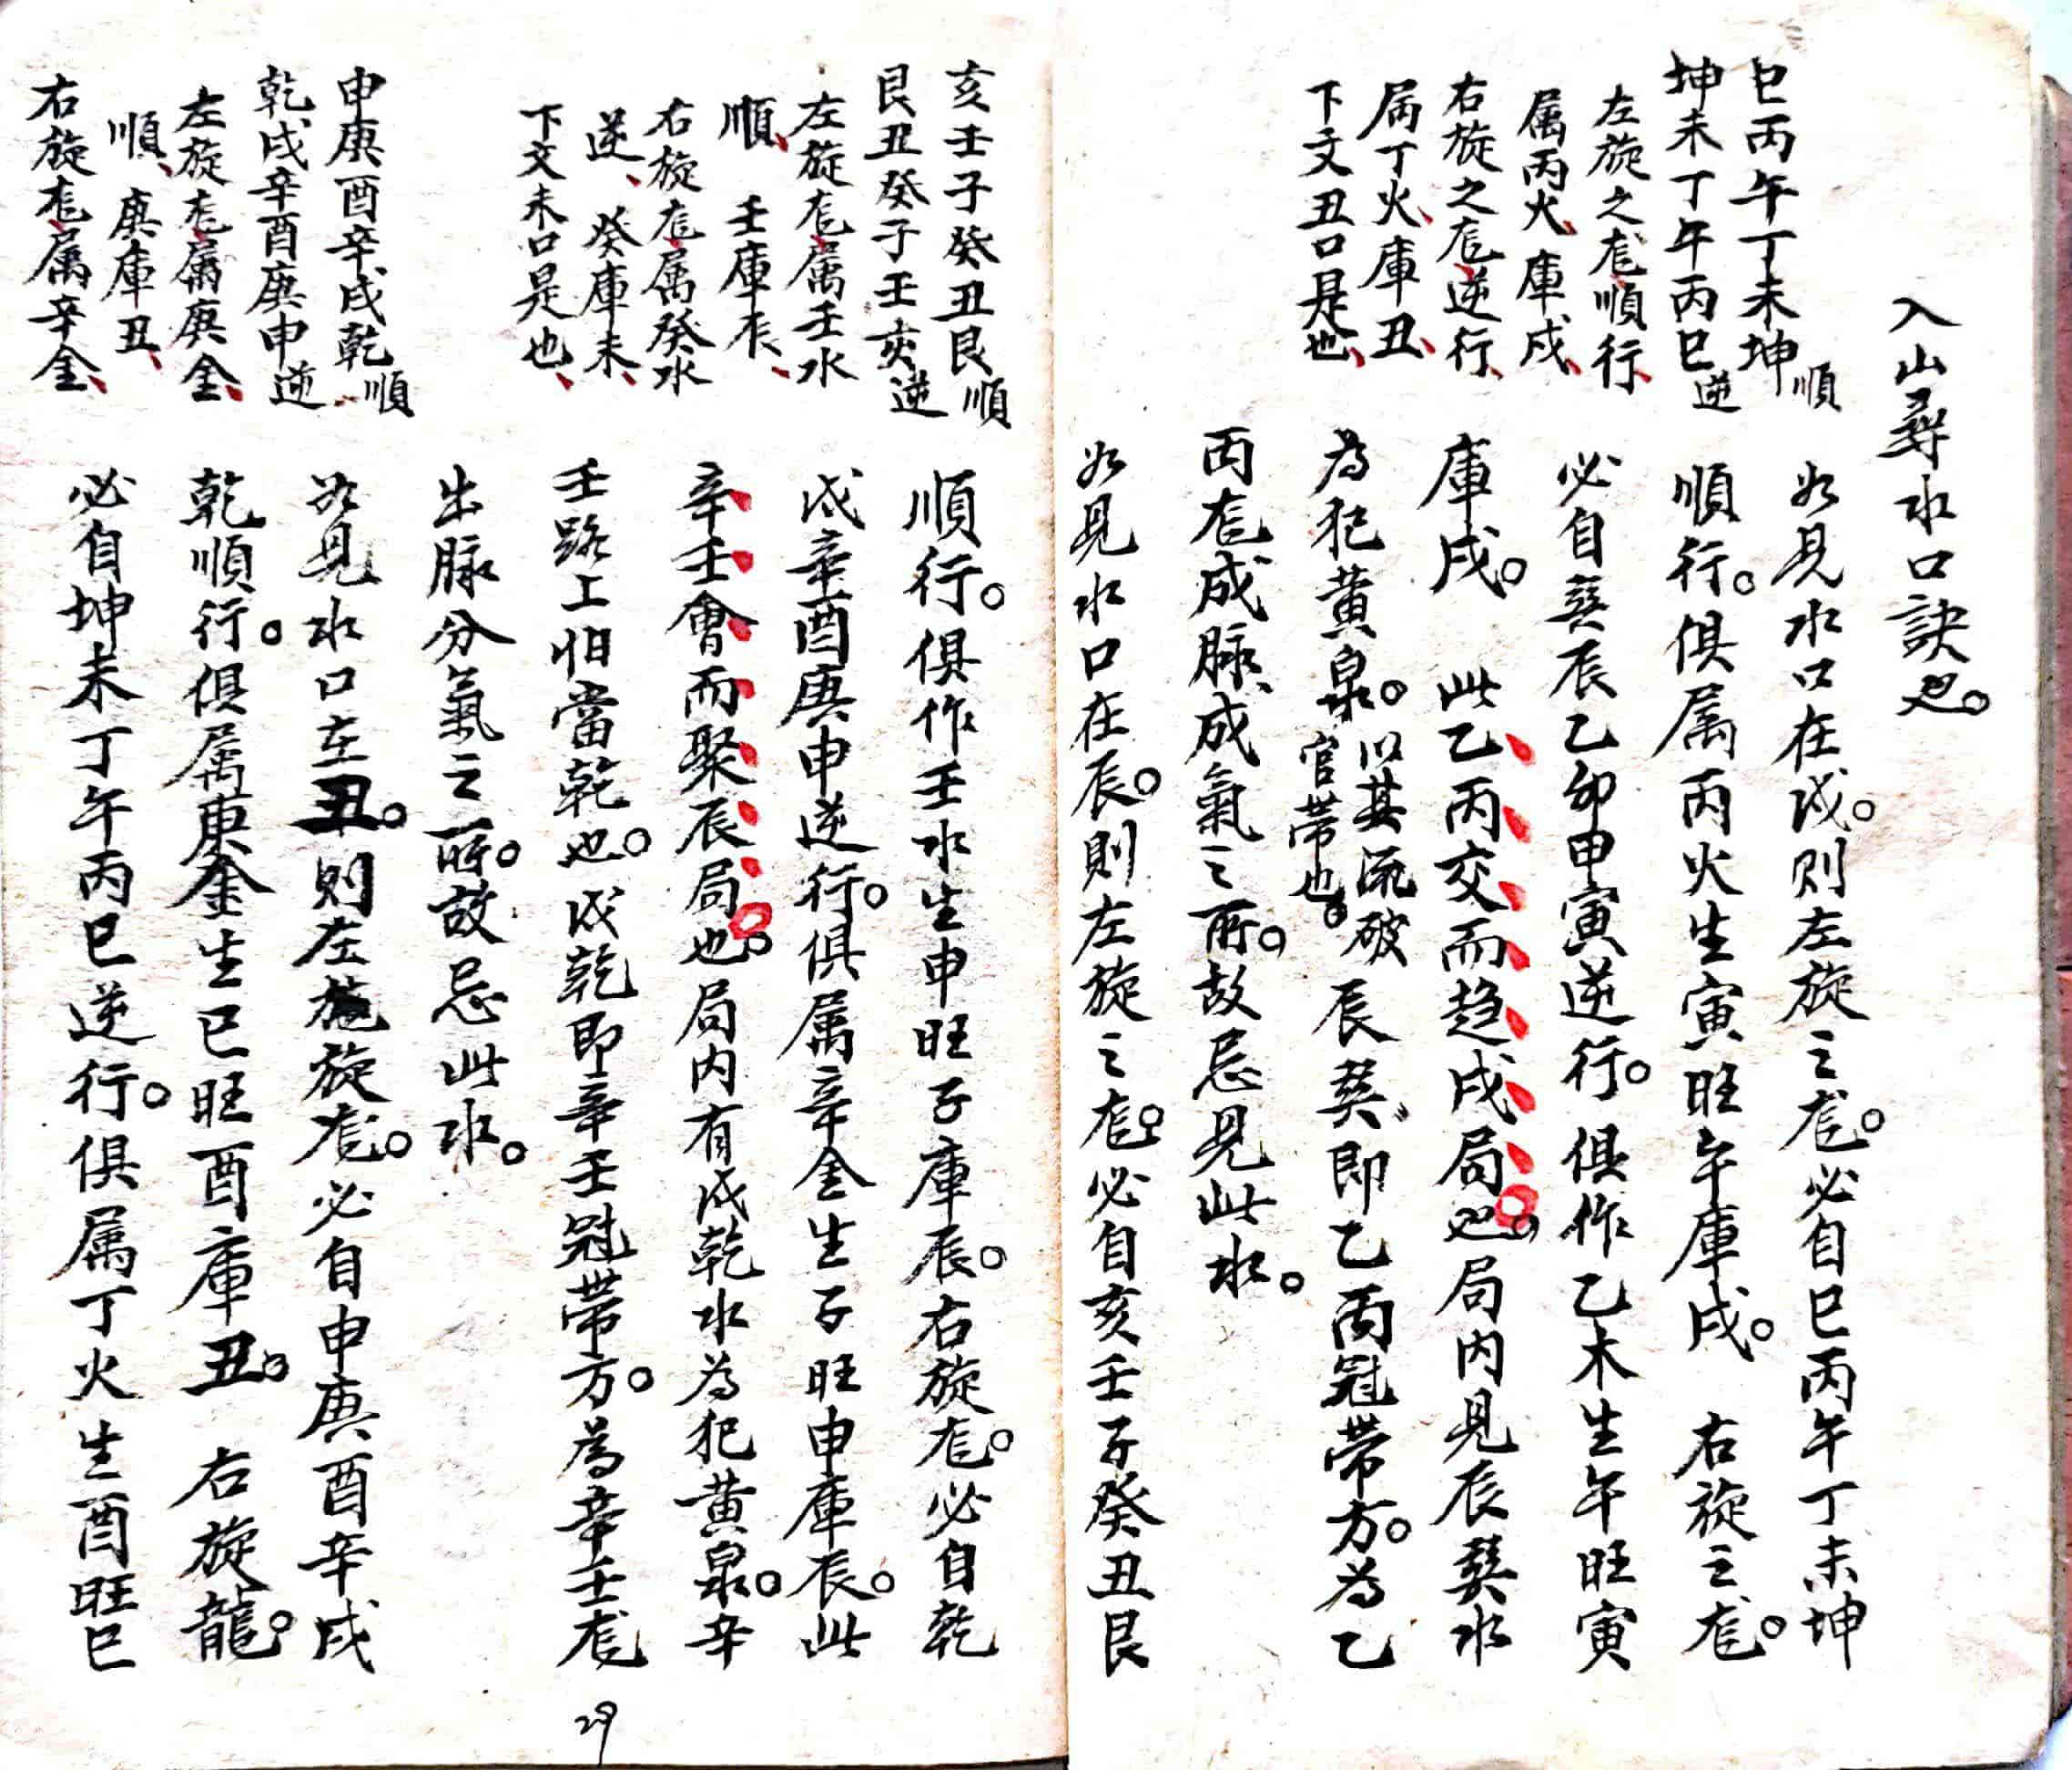 入山尋水口訣也。
巳丙午丁未坤順
坤未丁午丙巳逆
左旋之尨順行、
属丙火、庫戌、
右旋之尨逆行、
属丁火、庫丑、
下文丑口是也、
如見水口在戌。則左旋之尨。必自巳丙午丁未坤
順行。俱属丙火生寅旺午庫戌。 右旋之尨。
必自巽辰乙卯申寅逆行。俱作乙木生午旺寅
庫戌。 此乙丙交而趋戌局也。局内見辰巽水
為犯黄泉。以其流破官帶也。辰巽即乙丙冠帶方。為乙
丙尨成脉、成氣之所。故忌見此水。
如見水口在辰。則左旋之尨。必自亥壬子癸丑艮
亥壬子癸丑艮順
艮丑癸子壬亥逆
左旋尨属壬水
順、壬庫辰、
右旋尨属癸水
逆、癸庫未、
下文未口是也、
申庚酉辛戌乾順
乾戌辛酉庚申逆
左旋尨属庚金、
順、庚庫丑、
右旋尨属辛金、
順行。俱作壬水生申旺子庫辰。右旋尨。必自乾
戌辛酉庚申逆行。俱属辛金生子旺申庫辰。此
辛壬會而聚辰局也。局内有戌乾水為犯黄泉。辛
壬路上怕當乾也。戌乾即辛壬冠帶方。為辛壬尨
出脉分氣之所。故忌此水。
如見水口在丑。則左旋尨。必自申庚酉辛戌
乾順行。俱属庚金生巳旺酉庫丑。 右旋龍。
必自坤未丁午丙巳逆行。俱属丁火生酉旺巳
29